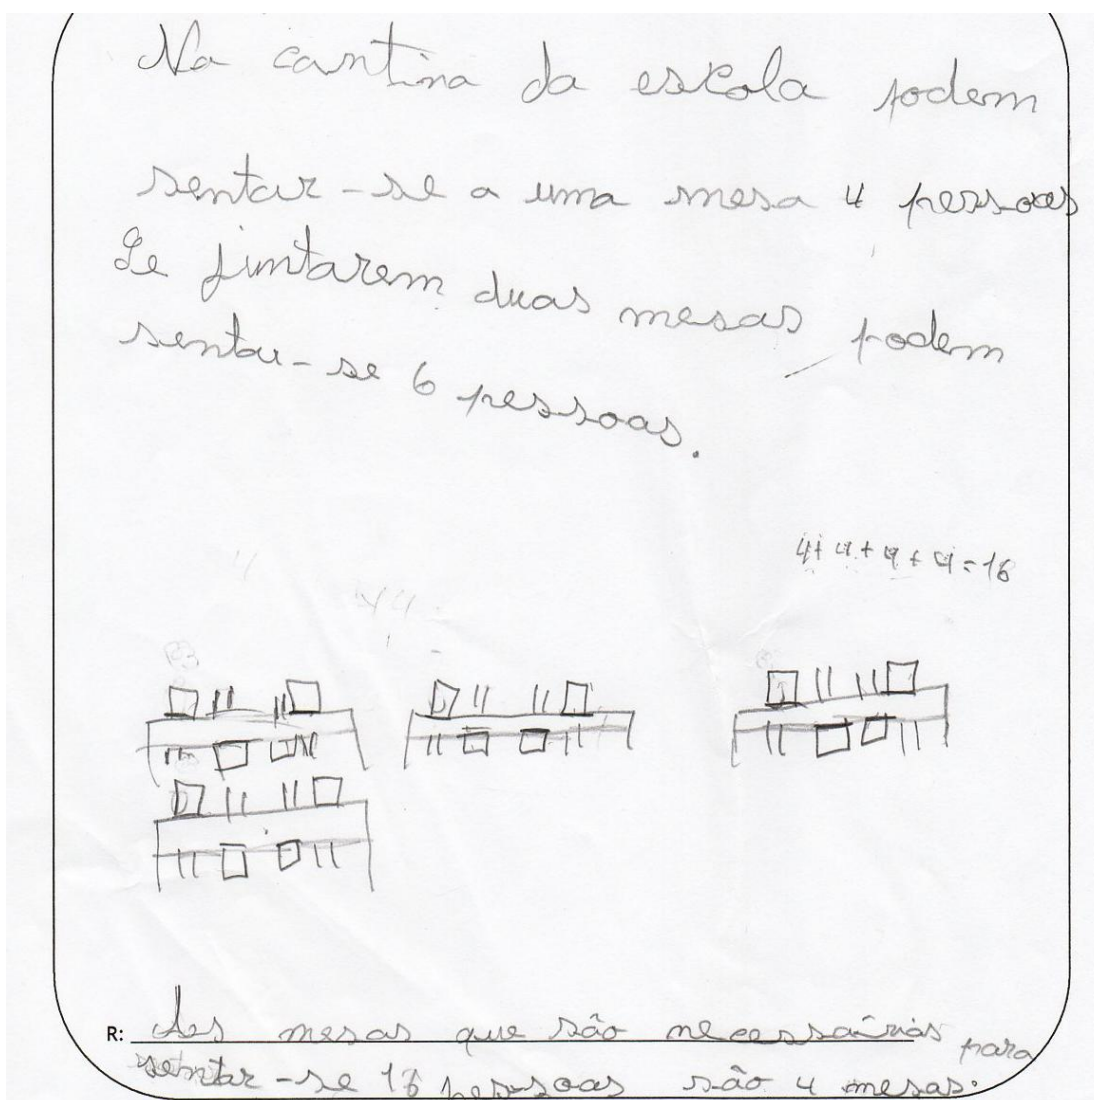 Na cantina da escola podem
sentar-se a uma mesa 4 pessoas
Se juntarem duas mesas podem
sentar-se 6 pessoas.
4+4+4+4=16
R: As mesas que são necessárias para
sentar-se 16 pessoas são 4 mesas.